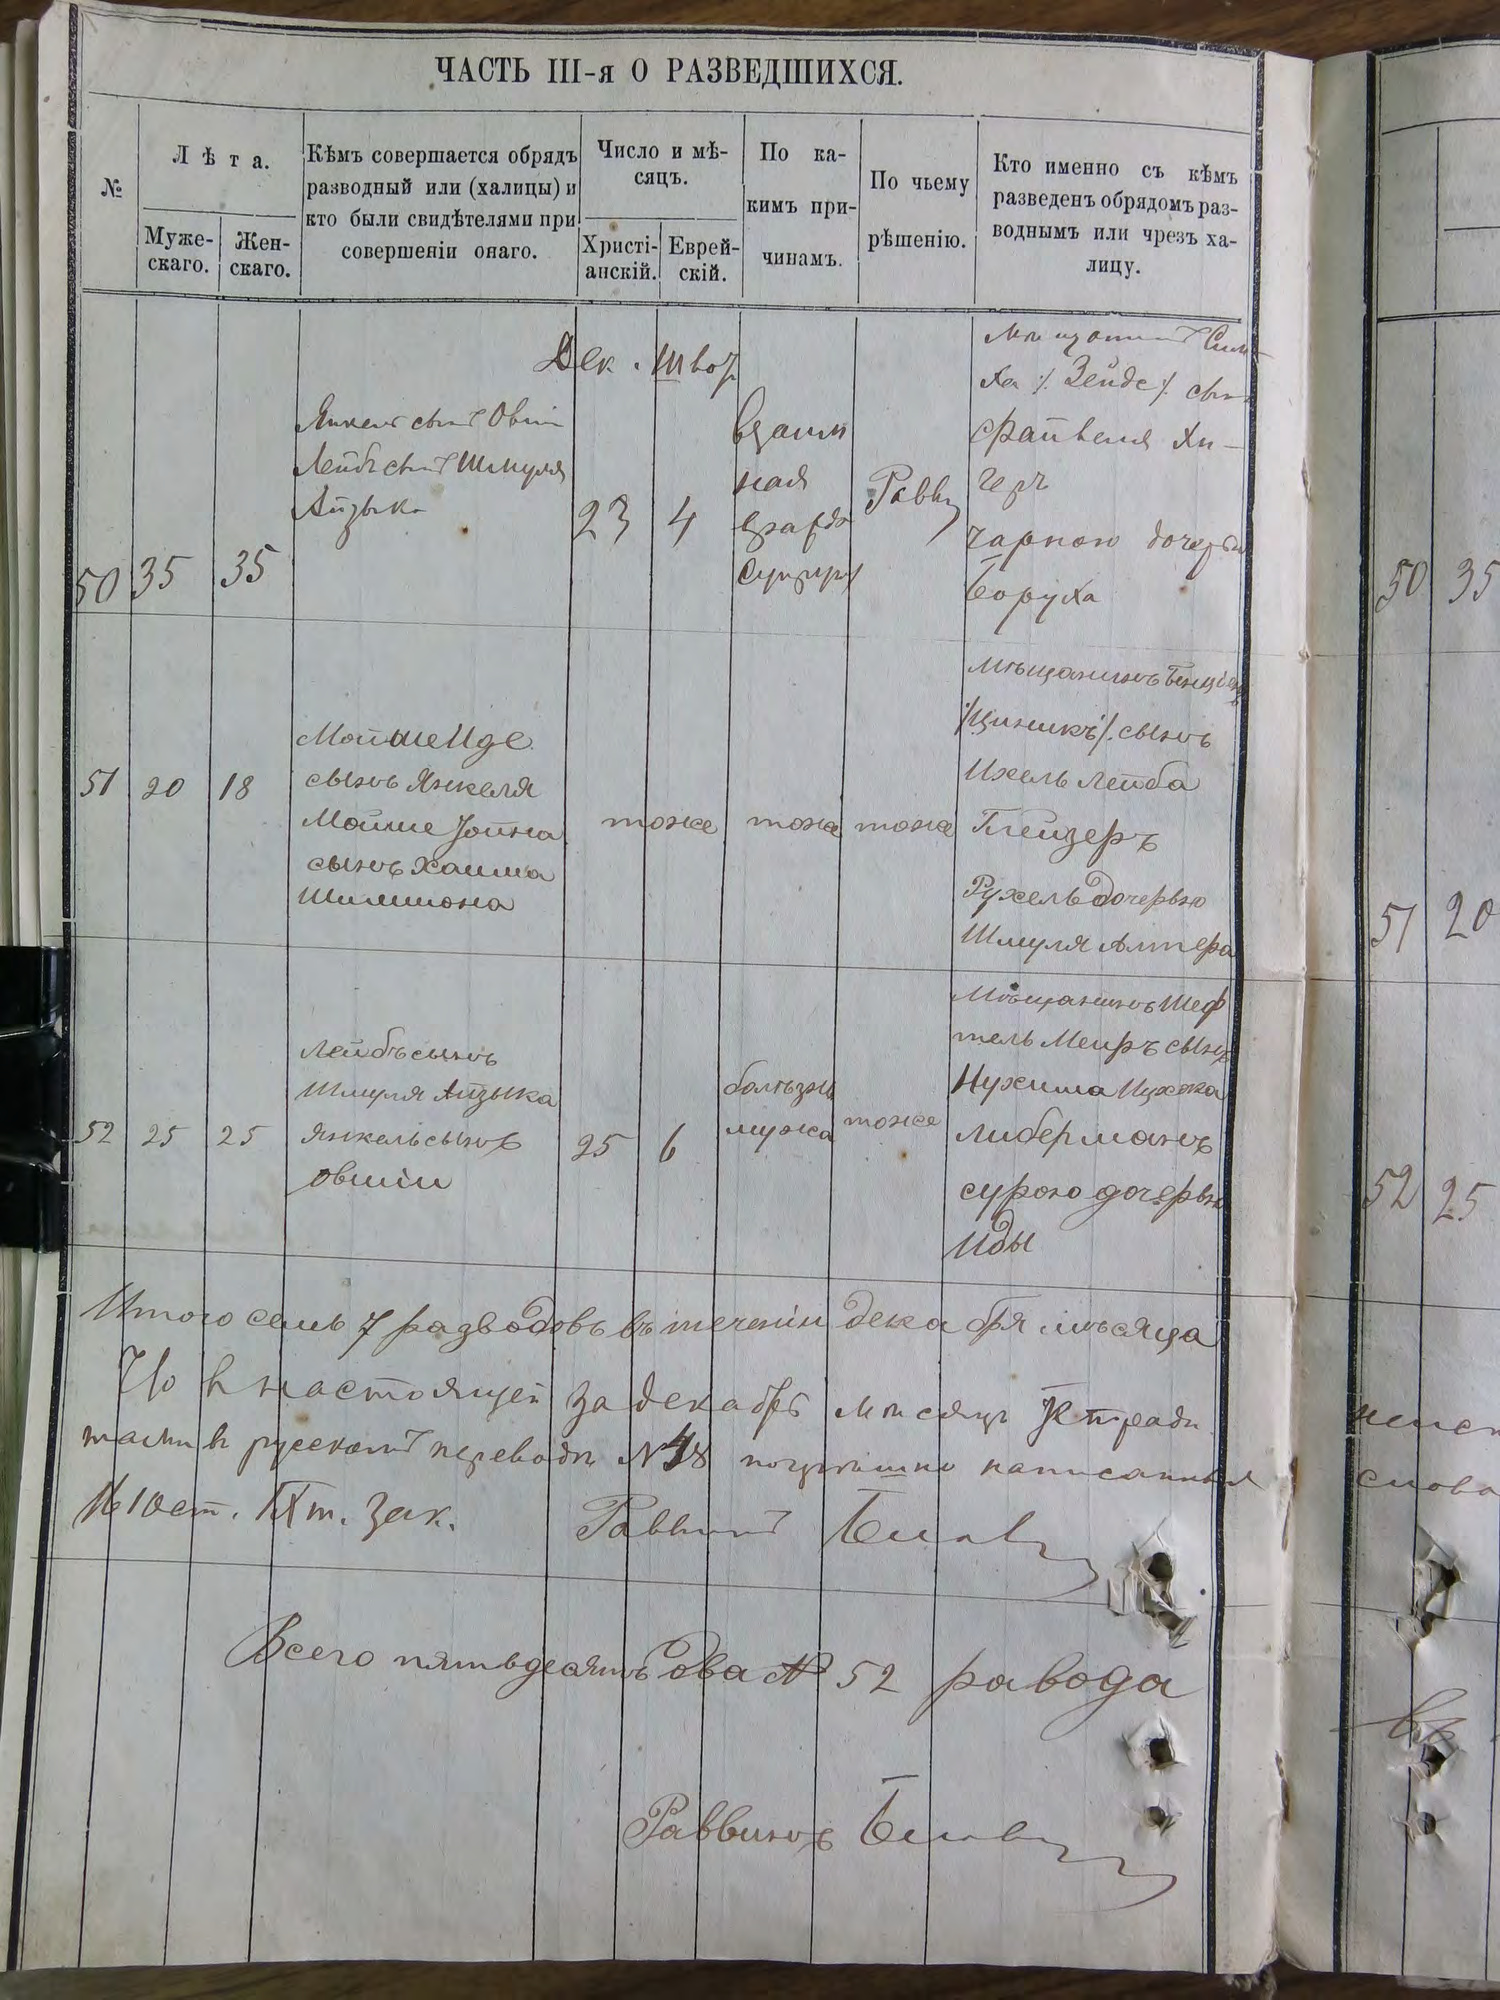 ЧАСТЬ III-я О РАЗВЕДШИХСЯ.
№
Лѣта.
Муже-
скаго.
Жен-
скаго.
Кѣмъ совершается обрядъ
разводный или (халицы) и
кто были свидѣтелями при
совершеніи онаго.
Число и мѣ-
сяцъ.
Христі-
анскій.
Еврей-
скій.
По ка-
кимъ при-
чинамъ.
По чьему
рѣшенію.
Кто именно съ кѣмъ
разведенъ обрядомъ раз-
воднымъ или чрезъ ха-
лицу.
50
35
35
Янкель сынъ Овшіи
Лейбъ сынъ Шмуля
Айзыка
Дек.
23
4
взаим
ная
вражда
Равв
Мѣщанинъ Сим
ха /. Зейде /. сынъ
Файвеля
Чарною дочерью
Боруха
51
20
18
Мойше Иде
сынъ Янкеля
Мойше Іойна
сынъ Хаима
Шимшона
тоже
тоже
тоже
Мѣщанинъ Бенціонъ
сынъ
Ихель Лейба
Глейзеръ
Рухель дочерью
Шмуля Алтера
52
25
25
Лейбъ сынъ
Шмуля Айзыка
Янкель сынъ
Овшіи
25
6
болѣзнь
мужа
тоже
Мѣщанинъ Шеф
тель Меиръ сынъ
Нухима Ицхока
Либерманъ
Сурою дочерью
Иды
Итого семь 7 разводовъ въ теченіи декабря мѣсяца
Что в настоящей за декабрь мѣсяцъ тетради
в русском переводѣ № написанныя
зак. Раввинъ
Всего пятьдесятъ два № 52 равода
Раввинъ
50 35
51 20
52 25